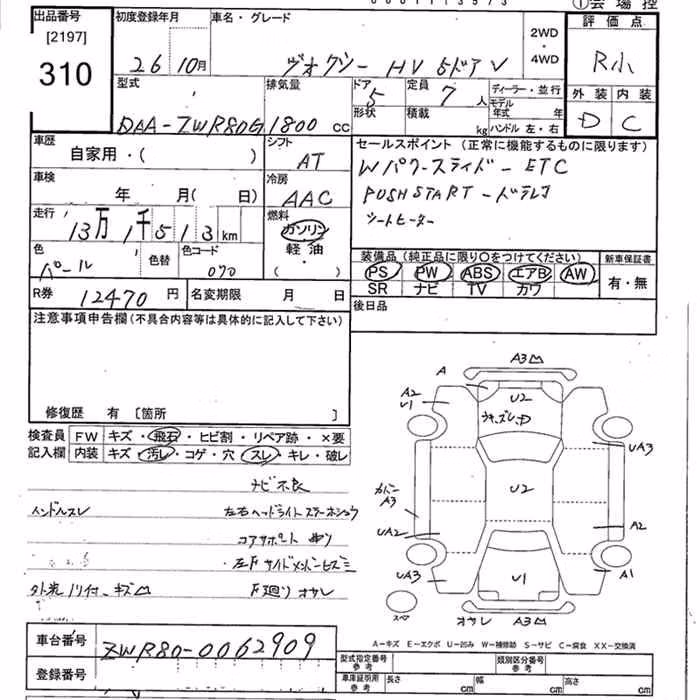 ①会場控
出品番号
[2197]
310
初度登録年月
26
10月
車名・グレード
ヴォクシー HV 5ドア V
2WD
・
4WD
評価点
R小
外装 内装
D C
型式
DAA-ZWR80G
排気量
1800 cc
ドア 5
形状
定員 7 人
積載 kg
ディーラー・並行
モデル年式 年
ハンドル 左・右
車歴
自家用・( )
シフト
AT
車検
年 月( 日)
冷房
AAC
走行
13万1千513km
燃料
ガソリン
軽油
( )
色
パール
色替
色コード
070
R券 12470 円
名変期限 月 日
セールスポイント (正常に機能するものに限ります)
Wパワースライド-ETC
PUSH START-ドラレコ
シートヒーター
装備品(純正品に限り○をつけてください)
PS PW ABS エアB AW
SR ナビ TV カワ
新車保証書
有・無
後日品
注意事項申告欄(不具合内容等は具体的に記入して下さい)
修復歴 有 〔箇所 〕
検査員記入欄
FW キズ・飛石・ヒビ割・リペア跡・×要
内装 キズ・汚レ・コゲ・穴・スレ・キレ・破レ
ナビ不良
ハンドルスレ
左右ヘッドライトステーホシュウ
コアサポート
左F サイドメンバー
キズ
下廻り
A3
A
A2
U1
U2
D
UA3
U2
カバー
A3
UA2
A2
UA3
U1
A1
スペ
オサレ A3
A-キズ E-エクボ U-凹み W-補修跡 S-サビ C-腐食 XX-交換済
車台番号
ZWR80-0062909
登録番号
型式指定番号
参考
類別区分番号
参考
車庫証明用
参考
長さ cm
幅 cm
高さ cm